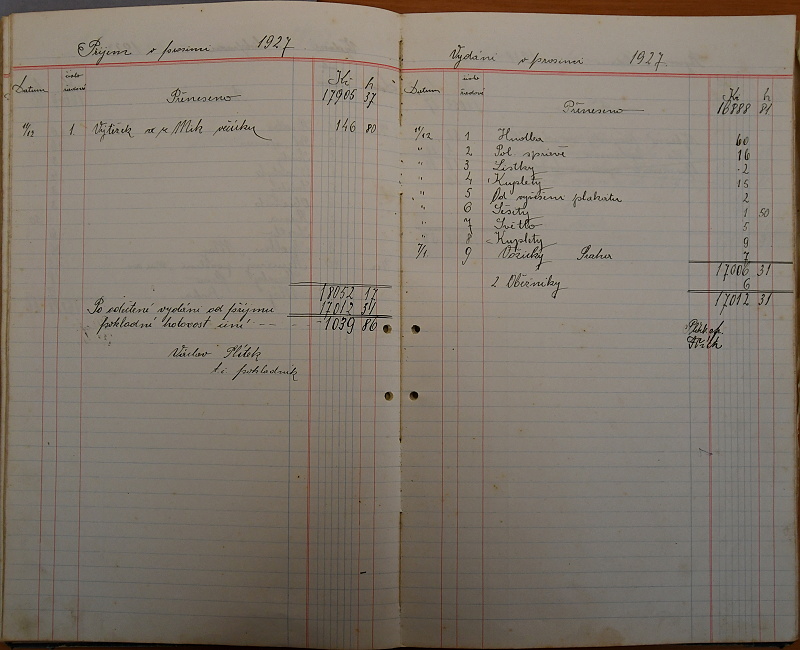 Příjem v prosinci 1927
Datum číslo řadové Kč h
Přeneseno 17905 37
11/12 1. Výtěžek z Mik večírku 146 80
18052 17
Po odečtené vydání od příjmu 17012 31
pokladní hotovost činí 1039 86
Václav Plítek
t. č. pokladník
Vydání v prosinci 1927
Datum číslo řadové Kč h
Přeneseno 16888 81
11/12 1 Hudba 60
" 2 Pol. správě 16
" 3 Lístky 2
" 4 Kuplety 15
" 5 Od vyvěšení plakátu 2
" 6 Sešity 1 50
" 7 Světlo 5
" 8 Kuplety 9
7/1 9 Praha 7
17006 31
2 Oběžníky 6
17012 31